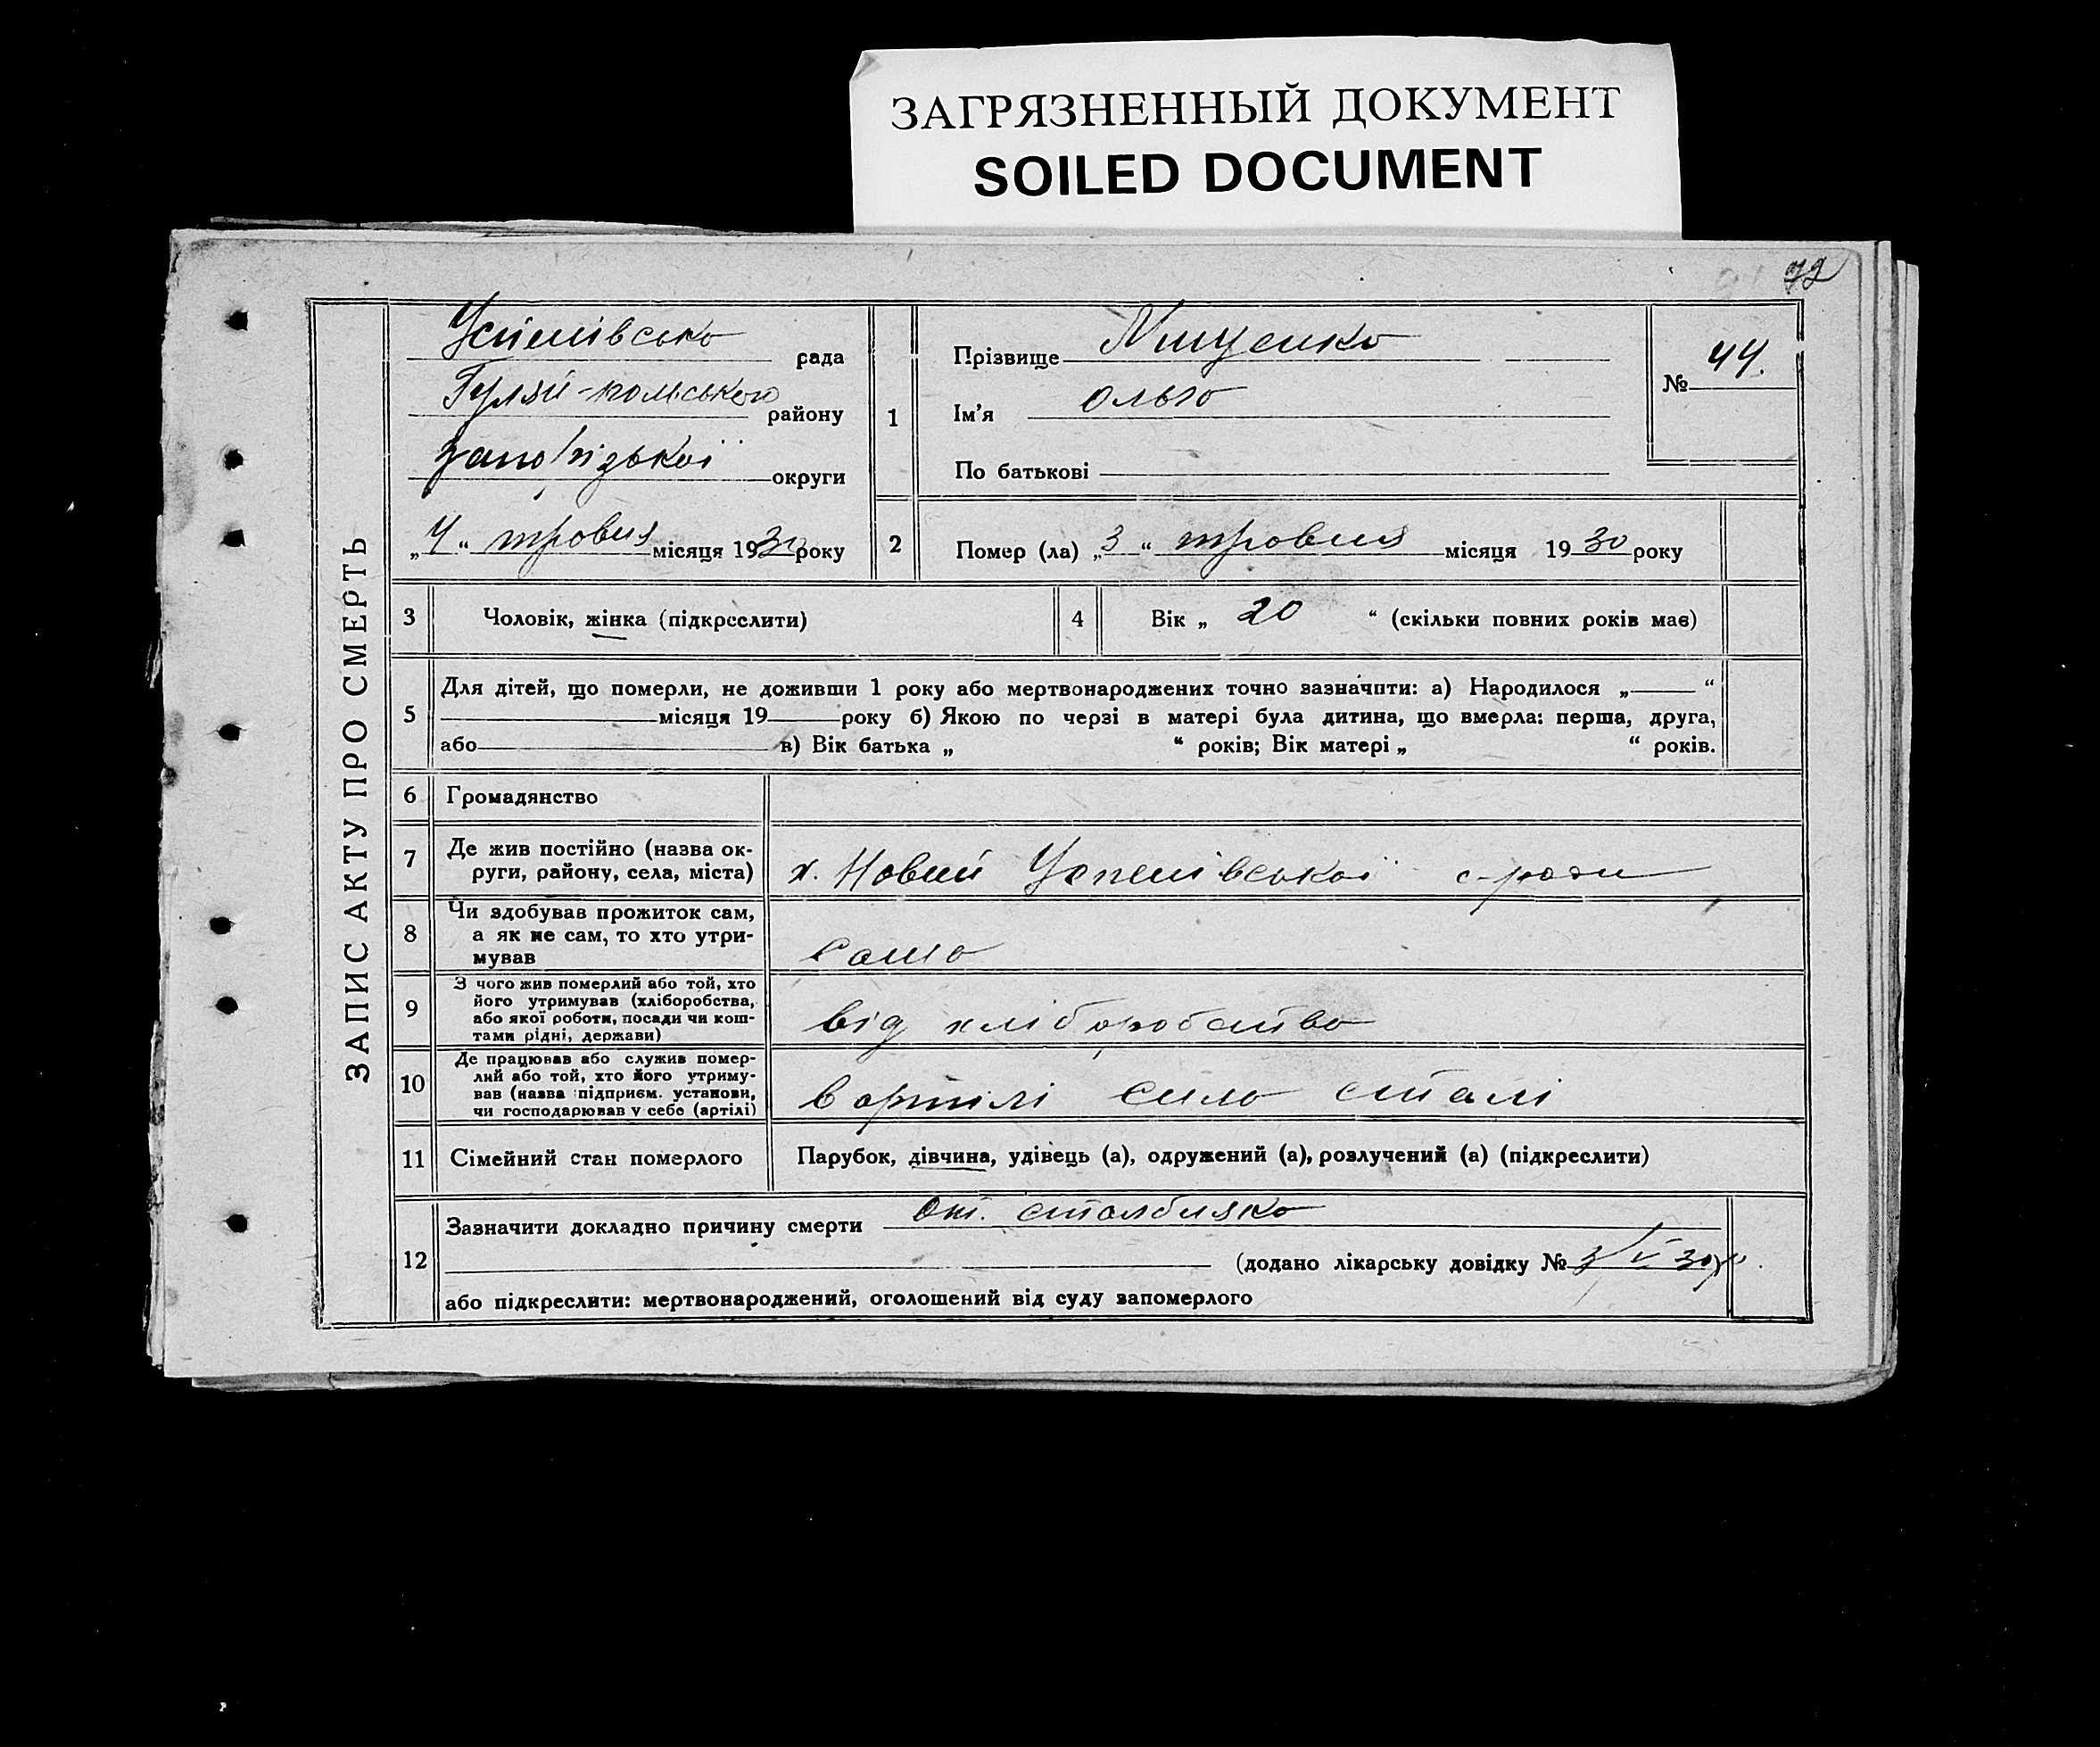 ЗАГРЯЗНЕННЫЙ ДОКУМЕНТ
SOILED DOCUMENT
72
ЗАПИС АКТУ ПРО СМЕРТЬ
Успенівсько рада
Гуляй-польської району
Запорізької округи
„4“ травня місяця 1930 року
1
Прізвище Мищенко
Ім'я Ольга
По батькові
№ 44.
2 Помер (ла) „3“ травня місяця 1930 року
3 Чоловік, жінка (підкреслити)
4 Вік „ 20 “ (скільки повних років має)
5 Для дітей, що померли, не доживши 1 року або мертвонароджених точно зазначити: а) Народилося „ “
місяця 19 року б) Якою по черзі в матері була дитина, що вмерла: перша, друга,
або в) Вік батька „ “ років; Вік матері „ “ років.
6 Громадянство
7 Де жив постійно (назва ок-
руги, району, села, міста) х. Новий Успенівської с-ради
8 Чи здобував прожиток сам,
а як не сам, то хто утри-
мував сама
9 З чого жив померлий або той, хто
його утримував (хліборобства,
або якої роботи, посади чи кош-
тами рідні, держави) від хліборобства
10 Де працював або служив помер-
лий або той, хто його утриму-
вав (назва підприєм. установи,
чи господарював у себе (артілі) в артілі сила сталі
11 Сімейний стан померлого Парубок, дівчина, удівець (а), одружений (а), розлучений (а) (підкреслити)
12 Зазначити докладно причину смерти От. столбняка
(додано лікарську довідку № 3/V 30р.
або підкреслити: мертвонароджений, оголошений від суду запомерлого